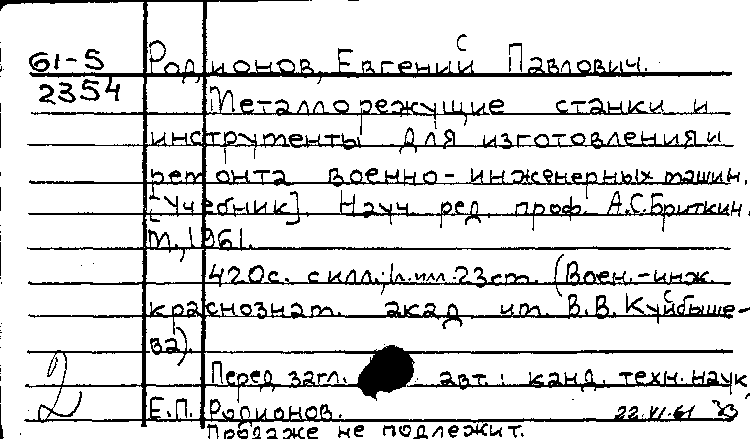 61-5 Родионов, Евгений Павлович.
2354
Металлорежущие станки и
инструменты для изготовления и
ремонта военно-инженерных машин.
[Учебник]. Науч. ред. проф. А.С. Бриткин.
М., 1961.
420с. с илл.; л. ил. 23см. (Воен.-инж.
краснознам. акад им. В.В. Куйбыше-
ва).
Перед загл. авт.: канд. техн. наук
2 Е.П. Родионов. 22.VI.61
Продаже не подлежит.